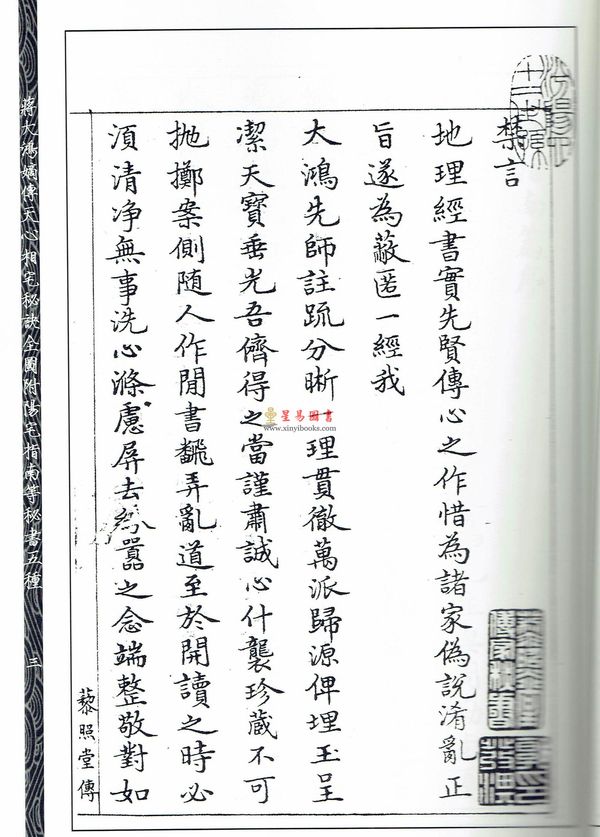 禁言
地理經書實先賢傳心之作惜為諸家偽說淆亂正
旨遂為蔽匿一經我
大鴻先師註疏分晰一理貫徹萬派歸源俾埋玉呈
潔天寶垂光吾儕得之當謹肅誠心什襲珍藏不可
拋擲案側隨人作閒書飜弄亂道至於開讀之時必
須清净無事洗心滌慮屏去紛囂之念端整敬對如
藜照堂傳
蔣大鴻嫡傳天心相宅秘訣全圖附陽宅指南等秘書五種
三
星易圖書
www.xinyibooks.com